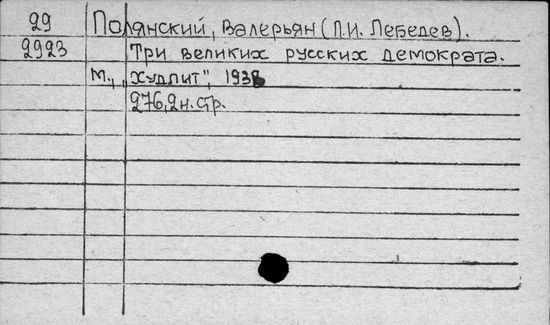 29 Полянский, Валерьян (П.И. Лебедев).
2923 Три великих русских демократа.
М., „Худлит", 1938
276,2н.стр.